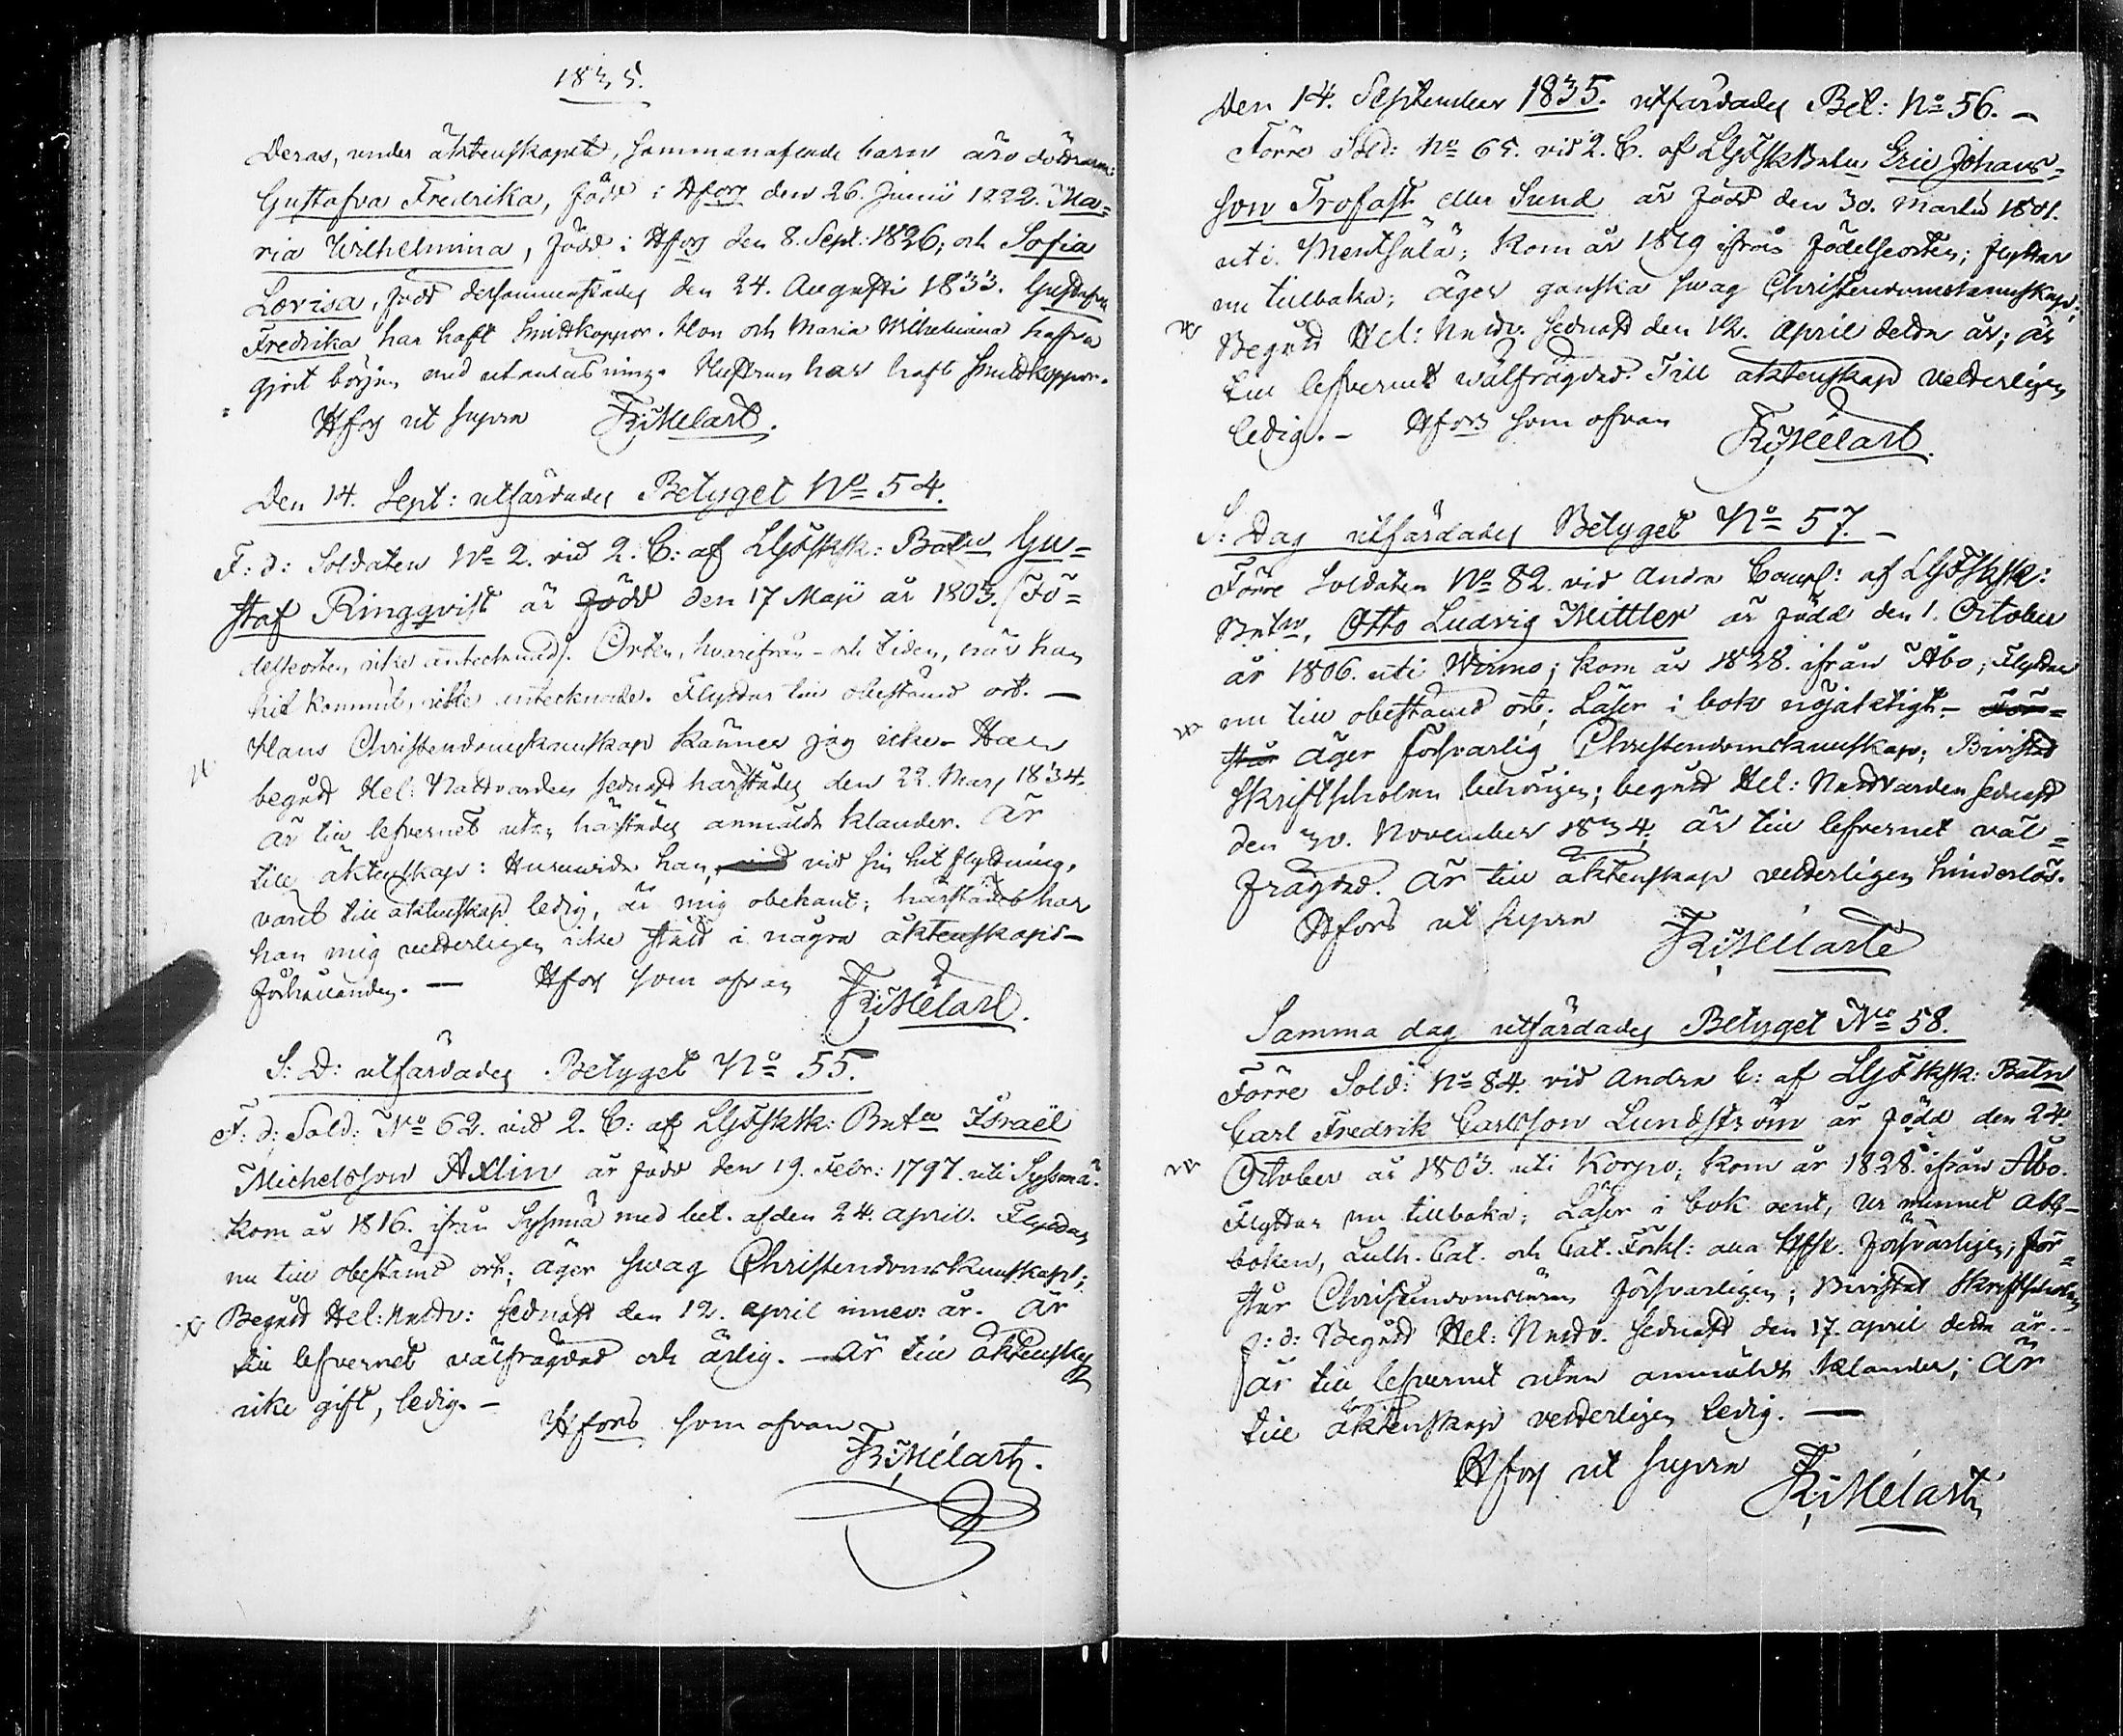 1835.
Deras, under äktenskapet, sammanaflade barn äro döttrarne:
Gustafva Fredrika, född i Hfors den 26. Junii 1822. Ma=
ria Wilhelmina, född i Hfors den 8. Sept: 1826; och Sofia
Lovisa, född dersammastädes den 24. Augusti 1833. Gustafva
Fredrika har haft Smittkoppor. Hon och Maria Wilhelmina hafva
gjort början med utanläsning. Hustrun har haft Smittkoppor.
Hfors ut supra FRiMelart.
Den 14. Sept: utfärdades Betyget No 54.
F: d: Soldaten No 2. vid 2. C: af LGdSkSk: Batn Gu=
staf Ringqvist är född den 17 Maji år 1803. (Fö=
delseorten icke antecknad). Orten, hvarifrån - och tiden, när han
hit kommit, icke antecknade. Flyttar till obestämd ort. —
Hans Christendomskunskap känner jag icke. Han
begådt Hel: Nattvarden sednast härstädes den 22. Mars 1834.
Är till lefvernet utan härstädes anmäldt klander. Är
till äktenskap: Huruvida han, vid sin hit flyttning,
varit till äktenskap ledig, är mig obekant; härstädes har
han mig vetterligen icke stått i några äktenskaps-
förhållanden. — Hfors som ofvan FRiMelart.
S: D: utfärdades Betyget No 55.
F: d: Sold: No 62. vid 2. C: af LGdSkSk: Batn Israël
Michelsson Axlin är född den 19. Febr: 1797. uti Sysmä.
kom år 1816. ifrån Sysmä med bet. af den 24. April. Flyttar
nu till obestämd ort; äger swag Christendomskunskap;
Begådt Hel: Nattv: sednast den 12. April innev: år. Är
till lefvernet välfrägdad och ärlig. — Är till äktenskap
icke gift, ledig. —
Hfors som ofvan
FRiMelart.
Den 14. September 1835. utfärdades Bet: No 56. —
Förre Sold: No 65. vid 2. C. af LGdSkBatn Eric Johans=
son Trofast eller Sund är född den 30. Martii 1801.
uti Mentsälä; kom år 1819 ifrån födelseorten; flyttar
nu tillbaka; äger ganska swag Christendomskunskap;
Begådt Hel: Nattv: sednast den 12. April detta år; är
till lefvernet wälfrägdad. Till äktenskap vetterligen
ledig. — Hfors som ofvan FRiMelart.
S: Dag utfärdades Betyget No 57. —
Förre Soldaten No 82. vid Andra Comp: af LGdSkSk:
Batn, Otto Ludvig Mittler är född den 1. October
år 1806. uti Wirmo; kom år 1828. ifrån Åbo; Flyttar
nu till obestämd ort; Läser i bok nöjaktigt. För=
står äger försvarlig Christendomskunskap; Bivistat
Skriftskolan behörigen; begådt Hel: Nattvarden sednast
den 30. November 1834; är till lefvernet väl=
frägdad. Är till äktenskap vetterligen hinderlös.
Hfors ut supra FRiMelart
Samma dag utfärdades Betyget No 58.
Förre Sold: No 84. vid Andra C: af LGdSkSk: Batn
Carl Fredrik Carlsson Lundström är född den 24.
October år 1803. uti Korpo; kom år 1828. ifrån Åbo.
Flyttar nu tillbaka; Läser i bok rent, ur minnet Abc-
boken, Luth. Cat. och Cat. Förkl: försvarligen; för=
står Christendomsläran försvarligen; Bivistat Skriftskolan
f: d: Begådt Hel: Nattv. sednast den 17. April detta år. -
är till lefvernet utan anmäldt klander; är
till äktenskap vetterligen ledig. —
Hfors ut supra FRiMelart